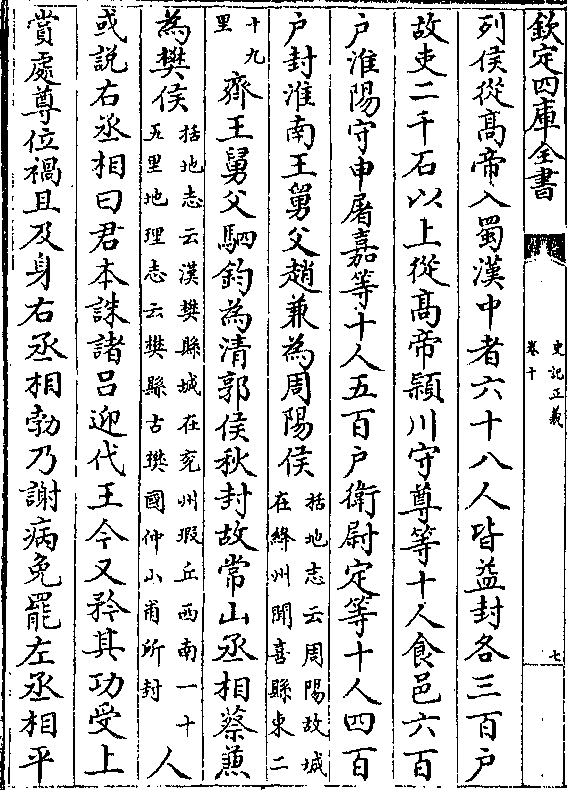 欽定四庫全書
史記正義
卷十
七
列侯從髙帝入蜀漢中者六十八人皆益封各三百户
故吏二千石以上從髙帝潁川守尊等十人食邑六百
户淮陽守申屠嘉等十人五百户衛尉定等十人四百
户封淮南王舅父趙兼為周陽侯括地志云周陽故城在絳州聞喜縣東二
十九里齊王舅父駟鈞為清郭侯秋封故常山丞相蔡兼
為樊侯括地志云漢樊縣城在兖州瑕丘西南二十五里地理志云樊縣古樊國仲山甫所封人
或説右丞相曰君本誅諸吕迎代王今又矜其功受上
賞處尊位禍且及身右丞相勃乃謝病免罷左丞相平